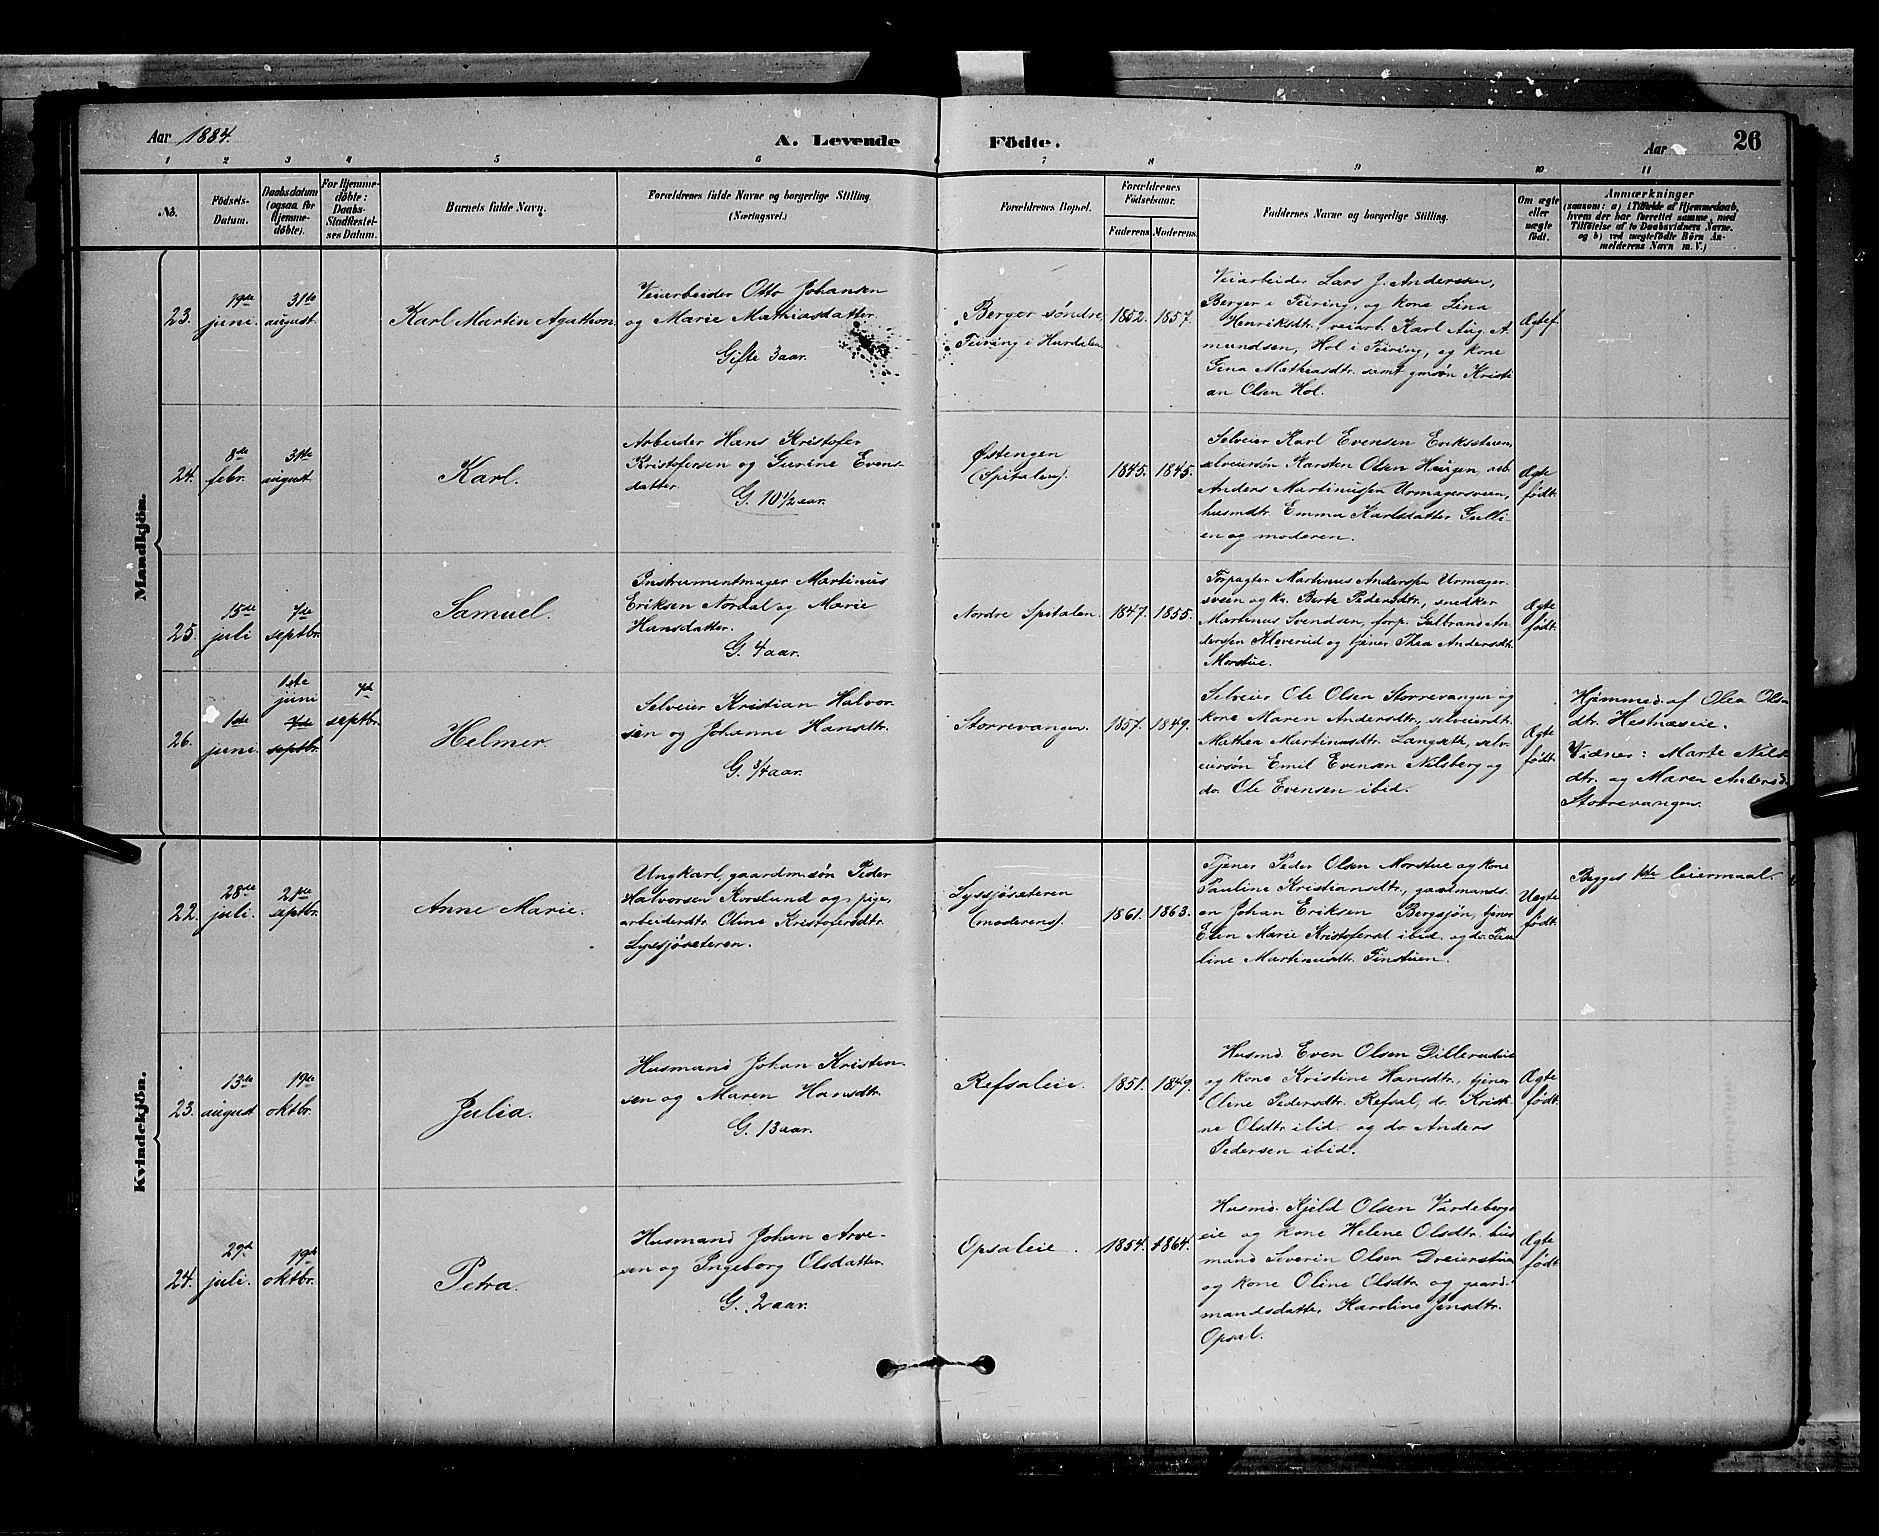 Aar 1884.
A. Levende Födte.
Aar
26
1 2 3 4 5 6 7 8 9 10 11
No.
Födsels-
Datum.
Daabsdatum
(ogsaa for
Hjemme-
döbte).
For Hjemme-
döbte:
Daabs-
Stadfæstel-
ses Datum.
Barnets fulde Navn.
Forældrenes fulde Navne og borgerlige Stilling
(Næringsvei.)
Forældrenes Bopæl.
Forældrenes
Födselsaar.
Faderens Moderens.
Faddernes Navne og borgerlige Stilling.
Om ægte
eller
uægte
födt.
Anmærkninger
(saasom: a) i Tilfælde af Hjemmedaab,
hvem der har forrettet samme, med
Tilföielse af to Daabsvidners Navne.
og b) ved uægtefödte Börn An-
melderens Navn m. V.)
Mandkjön.
23.
19de
juni.
31te
august.
Karl Martin Agathon
Veiarbeider Otto Johansen
og Marie Mathiasdatter.
Gifte 3 aar.
Berger søndre
Feiring i Hurdalen
1852. 1857.
Veiarbeider Lars J. Anderssen,
Berger i Feiring, og kone Lina
Henriksdtr., veiarb. Karl Aug. A-
mundsen, Hol i Feiring, og kone
Gina Mathiasdtr. samt gmsøn Kristi
an Olsen Hol.
Ægtef.
24.
8de
febr.
31te
august.
Karl.
Arbeider Hans Kristofer
Kristofersen og Guvine Evens-
datter.
G. 10 1/2 aar.
Østengen
(Spitalen).
1845. 1845.
Selveier Karl Evensen Eriksstuen,
selveiersøn Karsten Olsen Haugen arb.
Anders Martinussen Urmagersveen,
husmdtr. Emma Karlsdatter Gulli-
en og moderen.
Ægte
født.
25.
15de
juli
7de
septbr.
Samuel.
Instrumentmager Martinus
Eriksen Nordal og Marie
Hansdatter.
G. 4 aar.
Nordre Spitalen.
1847. 1855.
Forpagter Martinus Anderssen Urmager-
sveen og ko. Berte Pedersdtr., snedker
Martinus Svendsen, forp. Gulbrand An-
derssen Kloverud og tjener Thea Andersdtr.
Morstue.
Ægte
født.
26.
1ste
juni.
1ste
juni
7de
septbr.
7de
septbr.
Helmer.
Selveier Kristian Halvor-
sen og Johanne Hansdtr.
G. 3/4 aar.
Storrevangen.
1857. 1849.
Selveier Ole Olsen Storrevangen og
kone Maren Andersdtr., selveierdtr.
Mathea Martinusdtr. Langseth, selv-
eiersøn Emil Evensen Nilsberg og
do. Ole Evensen ibid.
Ægte
født.
Hjemmed. af Olea Ols-
dtr. Hestnæseie.
Vidner: Marte Nils-
dtr. og Maren Andersd.
Storrevangen.
Kvindekjön.
22.
28de
juli.
21de
septbr.
Anne Marie.
Ungkarl, gaardm.søn Peder
Halvorsen Korslund og pige,
arbeiderdtr. Oline Kristofersdtr.
Lysjøseteren.
Lysjøseteren
(moderens).
1861. 1863.
Tjener Peder Olsen Morstue og kone
Pauline Kristiansdtr., gaardmands-
øn Johan Eriksen Bergsjøn, tjener
Elen Marie Kristofersd. ibid. og do. Pau-
line Martinusdtr. Finstuen.
Uægte
født.
Begges 1ste leiermaal.
23.
13de
august
19de
oktbr.
Julia.
Husmand Johan Kristen-
sen og Maren Hansdtr.
G. 13 aar.
Refsaleie.
1851. 1849.
Husmd. Even Olsen Dillerudeie
og kone Kristine Hansdtr., tjener
Oline Pedersdtr. Refsal, do. Kristi-
ne Olsdtr. ibid. og do. Anders
Pedersen ibid.
Ægte
født.
24.
29de
juli.
19de
oktbr.
Petra.
Husmand Johan Arve-
sen og Ingeborg Olsdatter.
G. 2 aar.
Opsaleie.
1854. 1864.
Husmd. Kjeld Olsen Vardebergs
eie og kone Helene Olsdtr., hus
mand Severin Olsen Dreierstuen
og kone Oline Olsdtr. og gaard-
mandsdatter Karoline Jensdtr.
Opsal.
Ægte
født.